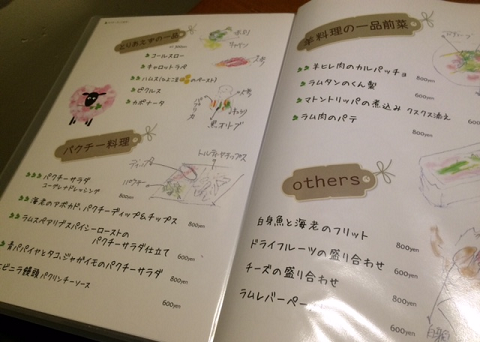 とりあえずの一品
コールスロー
キャロットラペ
ハムス(ひよこ豆のペースト)
ピクルス
カポナータ
黒オリーブ
パクチー料理
トルティヤチップス
パクチー
パクチーサラダ
コーザレナドレッシング
800yen
海老のアボカド、パクチーディップ&チップス
800yen
ラムスペアリブスパイシーローストの
パクチーサラダ仕立て
600yen
青パパイヤとタコ、じゃがイモのパクチーサラダ
800yen
ピニラ饅頭 パクリンチーソース
600yen
羊料理の一品前菜
羊ヒレ肉のカルパッチョ
800yen
ラムタンのくん製
600yen
マトントリッパの煮込み クスクス添え
800yen
ラム肉のパテ
800yen
others
白身魚と海老のフリット
800yen
ドライフルーツの盛り合わせ
600yen
チーズの盛り合わせ
800yen
ラムレバーペー
600yen